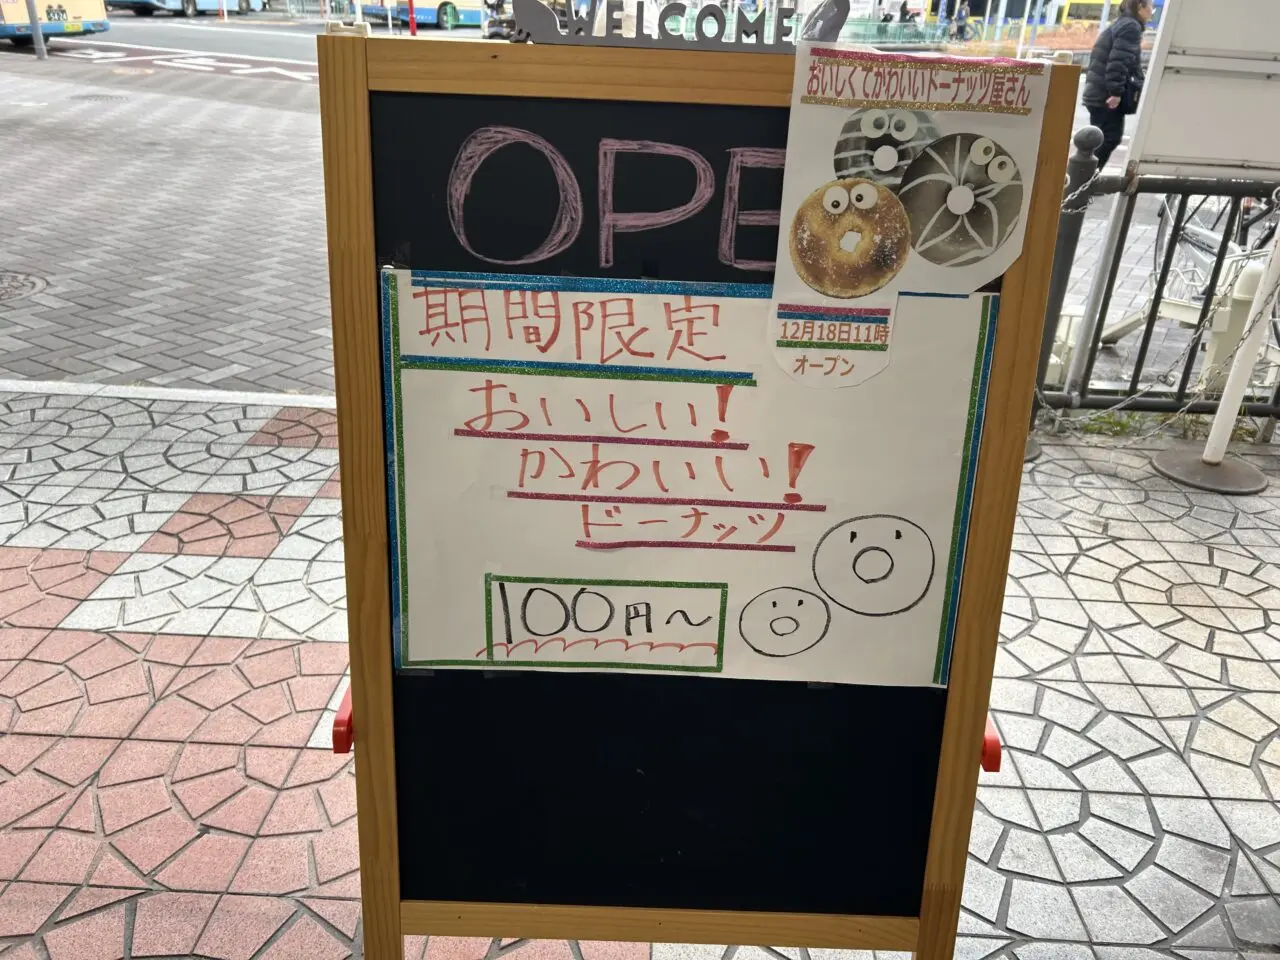 WELCOME
おいしくてかわいいドーナッツ屋さん
OPE
12月18日11時
オープン
期間限定
おいしい!
かわいい!
ドーナッツ
100円～